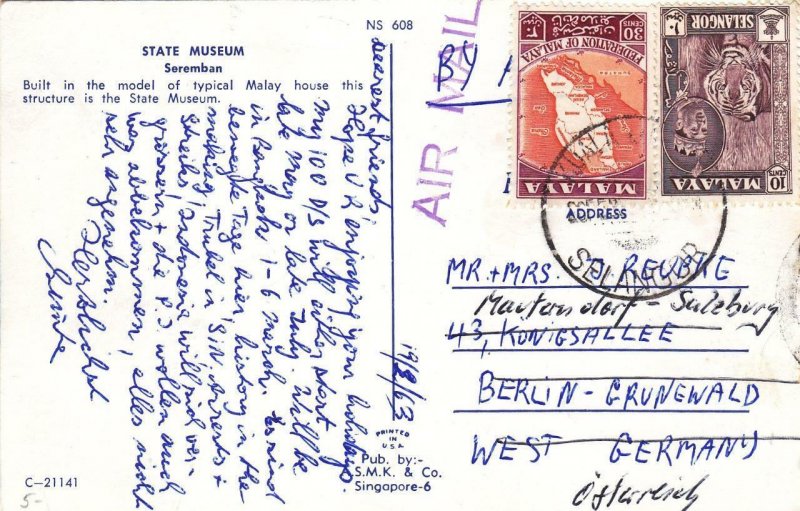 NS 608
STATE MUSEUM
Seremban
Built in the model of typical Malay house this
structure is the State Museum.
19/2/63
Dearest friends,
Hope U R enjoying your holidays.
My 100 D/s will either start
late May or late July. Will be
in Bangkok 1-6 March. Es sind
bewegte Tage hier, history in the
making, Trubel in S'in. Arrests +
Streiks, Indonesia will sich ver-
grössern + die P.I wollen auch
was abbekommen, alles nicht
sehr angenehm.
Herzlichst
C-21141
5-
PRINTED
IN
U.S.A.
Pub. by:-
S.M.K. & Co.
Singapore-6
AIR MAIL
BY
30
CENTS
FEDERATION OF MALAYA
MALAYA
SELANGOR
10
CENTS
MALAYA
SELANGOR
ADDRESS
MR. + MRS. REUBKE
Mauterndorf - Salzburg
43, KÖNIGSALLEE
BERLIN - GRUNEWALD
WEST GERMANY
Österreich